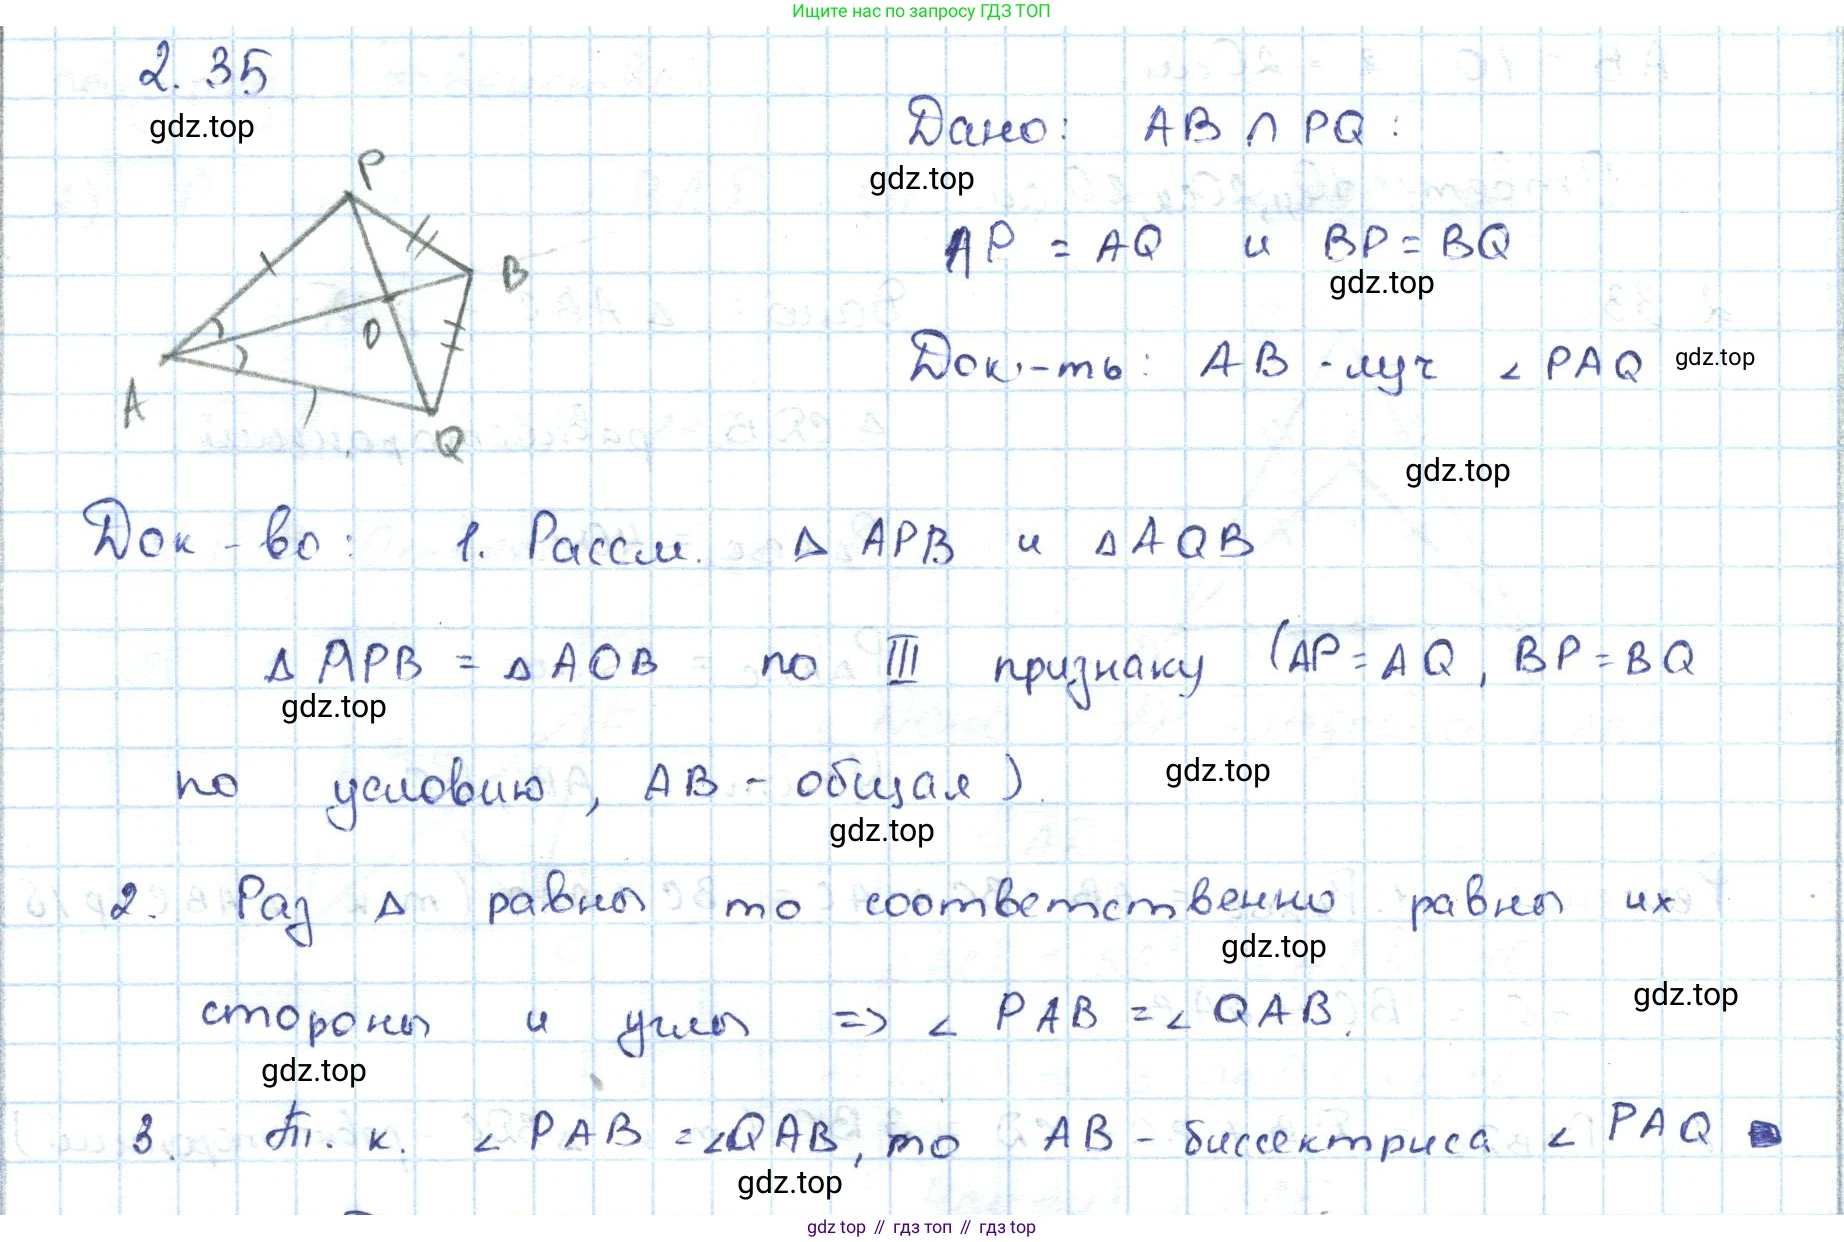 Ищите нас по запросу ГДЗ ТОП
2.35
gdz.top
Дано: AB ∩ PQ :
gdz.top
P
AP = AQ и BP = BQ
gdz.top
B
O
Док-ть: AB - луч ∠ PAQ gdz.top
A
Q
gdz.top
Док-во: 1. Рассм. Δ APB и Δ AQB
Δ APB = Δ AOB по III признаку (AP = AQ, BP = BQ
gdz.top
по условию, AB - общая).
gdz.top
gdz.top
2. Раз Δ равны то соответственно равны их
gdz.top
стороны и углы => ∠ PAB = ∠ QAB.
gdz.top
gdz.top
3. Т. к. ∠ PAB = ∠QAB, то AB - биссектриса ∠ PAQ
gdz.top
gdz top // гдз топ // gdz top